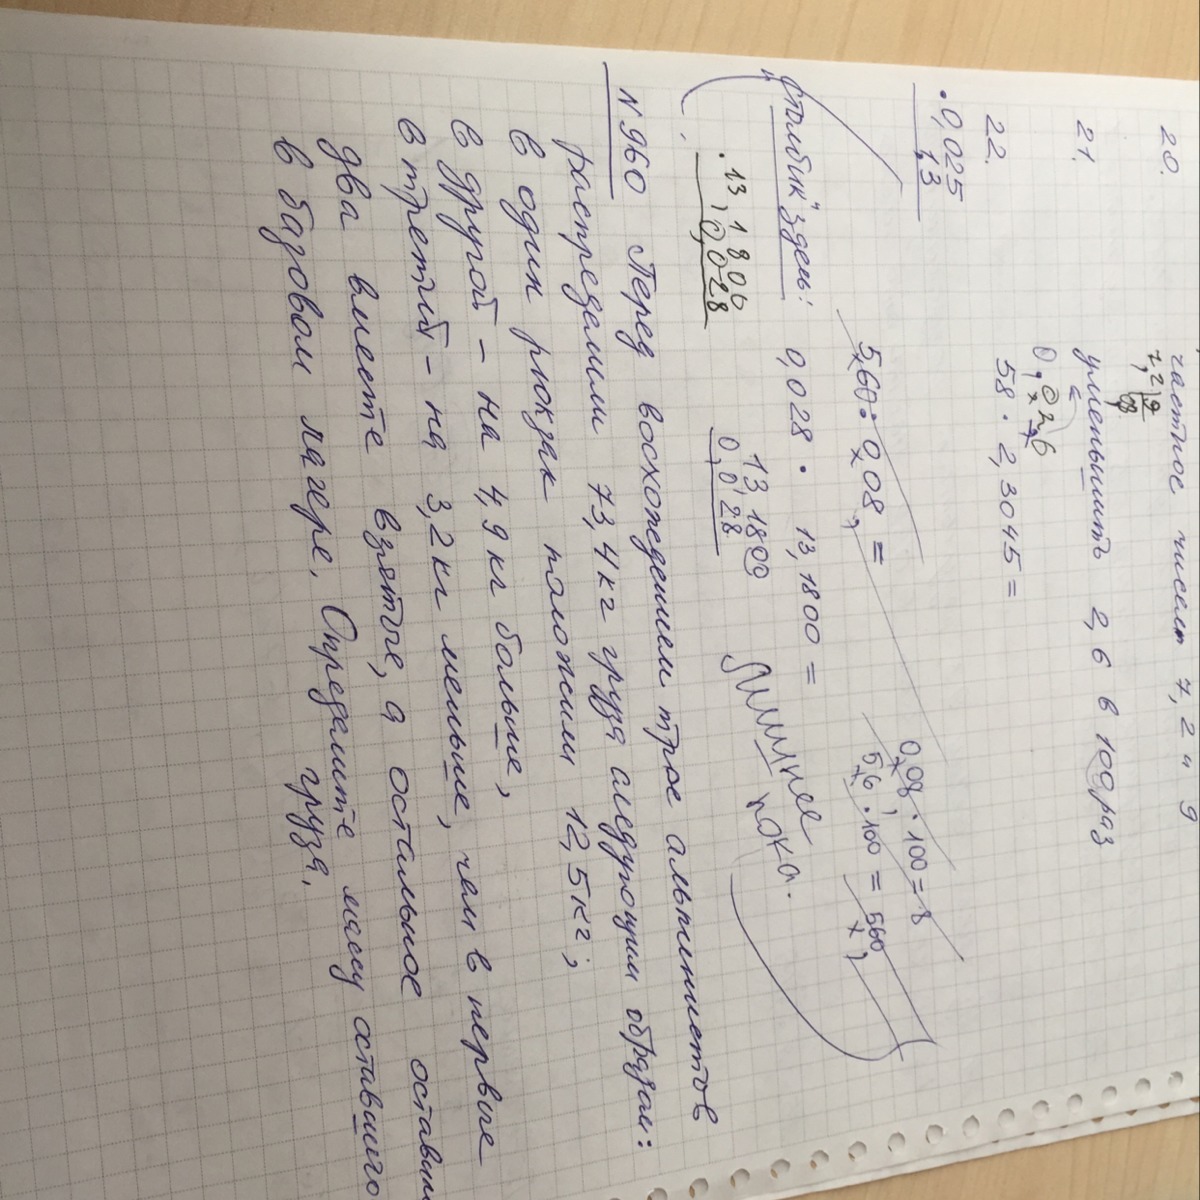 20. частное чисел 7,2 и 9
7,2 9
0,8
21. уменьшить 2,6 в 100 раз
0,026
22. 58 · 2,3045 =
0,025
1,3
5,60 : 0,08 =
0,08 · 100 = 8
5,6 · 100 = 560,
"столбик" здесь: 0,028 · 13,1800 =
13,1806
0,028
13,1800
0,028
лишнее
пока.
N 960 Перед восхождением трое альпинистов
распределили 73,4 кг груза следующим образом:
в один рюкзак положили 12,5 кг;
в другой - на 4,9 кг больше,
в третий - на 3,2 кг меньше, чем в первые
два вместе взятые, а остальное оставили
в базовом лагере. Определите массу оставшегося
груза.